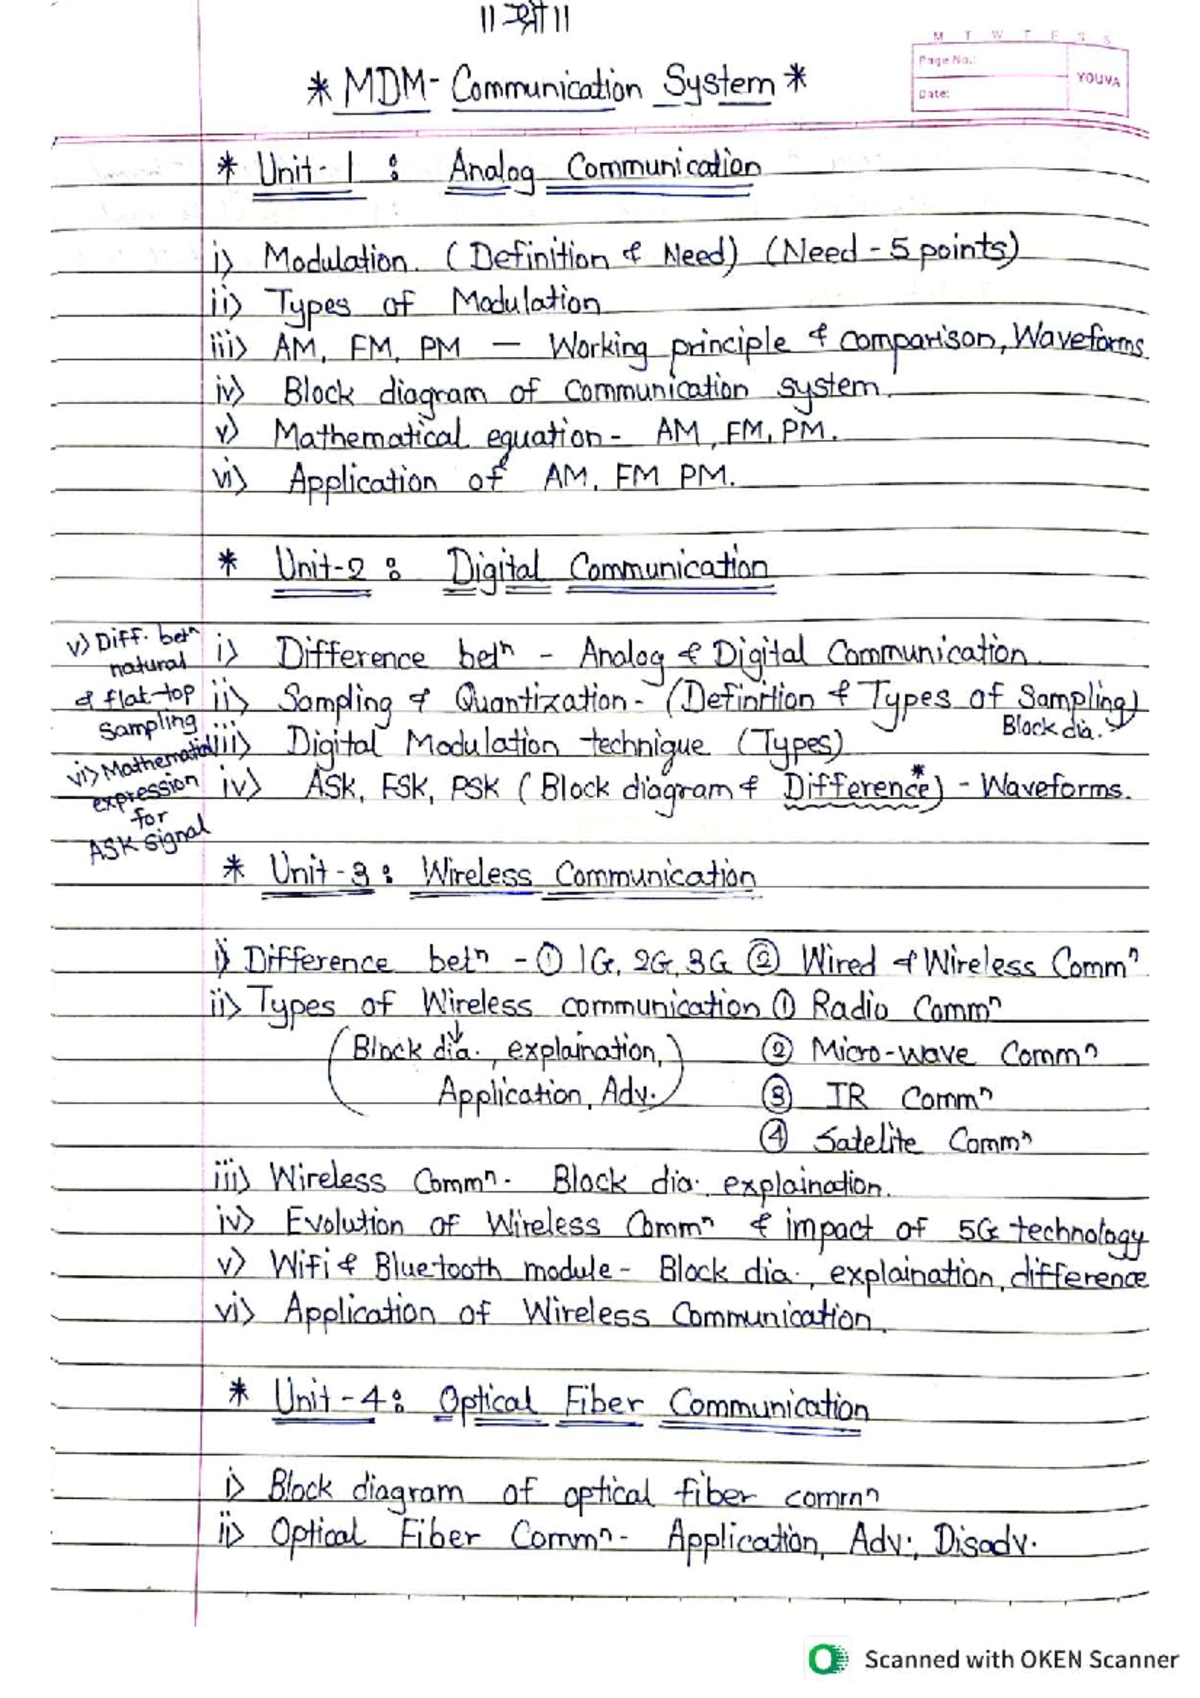 ॥ श्री ॥
M T W T F S S
Page No.:
YOUVA
Date:
* MDM- Communication System *
* Unit-1 : Analog Communication
i) Modulation. (Definition & Need) (Need - 5 points)
ii) Types of Modulation
iii) AM, FM, PM — Working principle & comparison, Waveforms.
iv) Block diagram of communication system.
v) Mathematical equation - AM, FM, PM.
vi) Application of AM, FM PM.
* Unit-2 : Digital Communication
i) Difference betn - Analog & Digital Communication.
ii) Sampling & Quantization - (Definition & Types of Sampling)
Block dia.
iii) Digital Modulation technique (Types)
iv) ASK, FSK, PSK (Block diagram & Difference*) - Waveforms.
v) Diff. betn
natural
& flat-top
Sampling
vi) Mathematical
expression
for
ASK signal
* Unit-3 : Wireless Communication
i) Difference betn - ① 1G, 2G, 3G ② Wired & Wireless Commn
ii) Types of Wireless communication ① Radio Commn
(Block dia., explaination, ② Micro-wave Commn
Application, Adv.) ③ IR Commn
④ Satelite Commn
iii) Wireless Commn. Block dia. explaination.
iv) Evolution of Wireless Commn & impact of 5G technology
v) Wifi & Bluetooth module - Block dia., explaination, difference
vi) Application of Wireless Communication.
* Unit-4 : Optical Fiber Communication
i) Block diagram of optical fiber commn
ii) Optical Fiber Commn - Application, Adv., Disadv.
Scanned with OKEN Scanner